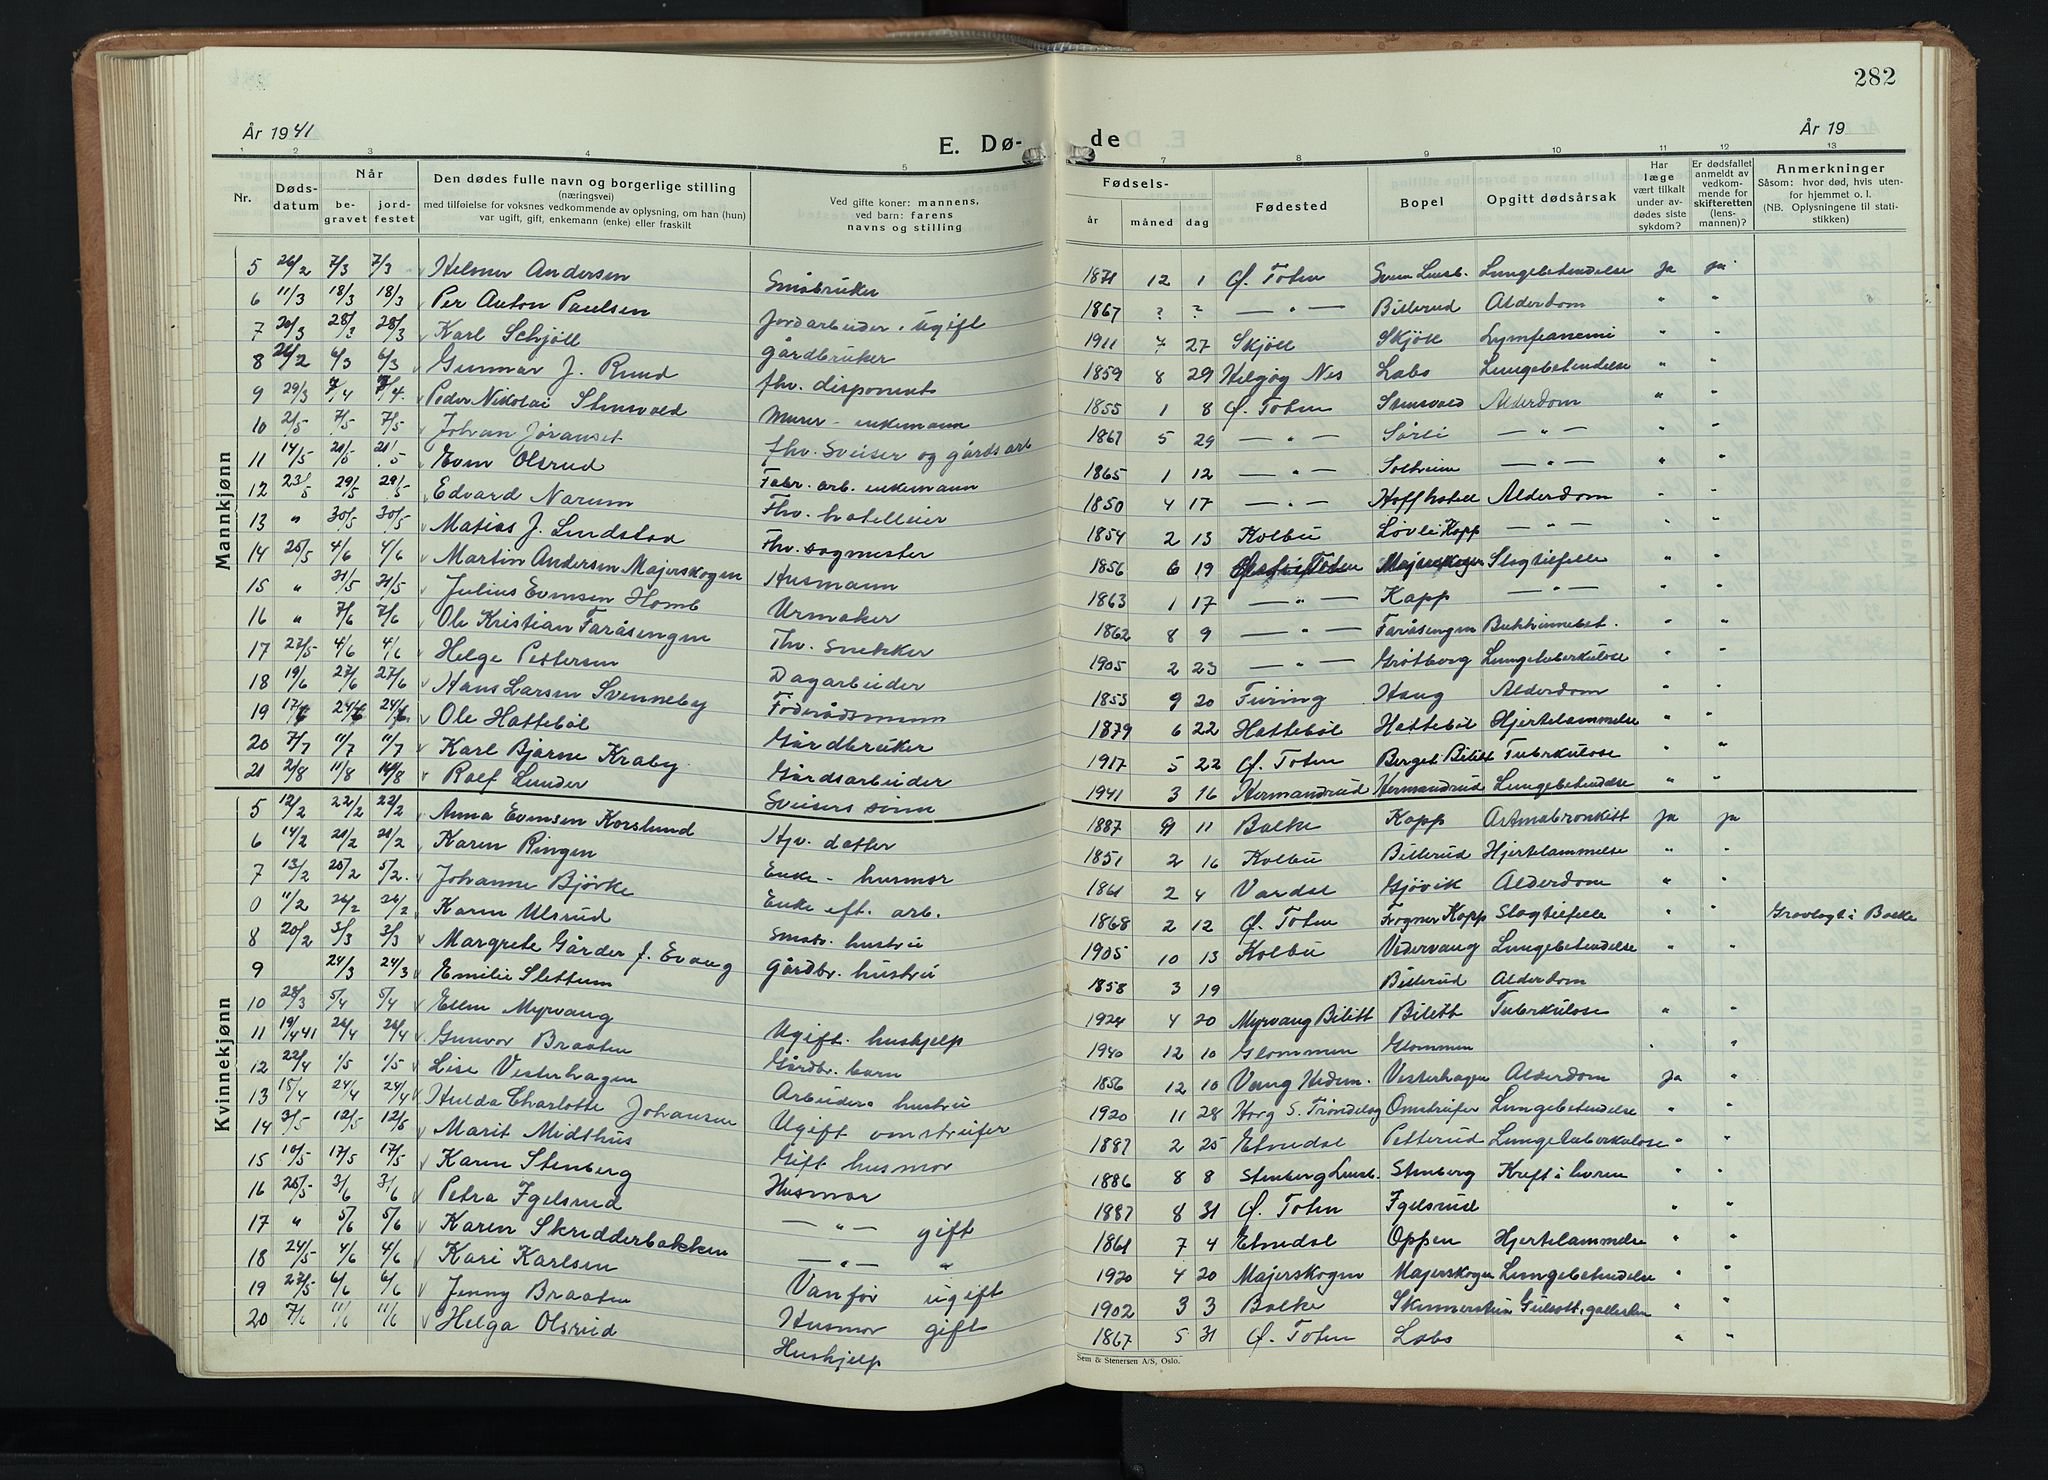 282
År 1941
E. Dø-
de
År 19
1 2 3 4 5 7 8 9 10 11 12 13
Nr.
Døds-
datum
Når
be-
gravet
jord-
festet
Den dødes fulle navn og borgerlige stilling
(næringsvei)
med tilføielse for voksnes vedkommende av oplysning, om han (hun)
var ugift, gift, enkemann (enke) eller fraskilt
Ved gifte koner: mannens,
ved barn: farens
navns og stilling
Fødsels-
år måned dag
Fødested
Bopel
Opgitt dødsårsak
Har
læge
vært tilkalt
under av-
dødes siste
sykdom?
Er dødsfallet
anmeldt av
vedkom-
mende for
skifteretten
(lens-
mannen)?
Anmerkninger
Såsom: hvor død, hvis uten-
for hjemmet o. l.
(NB. Oplysningene til stati-
stikken)
Mannkjønn
5 26/2 7/3 7/3 Helmer Andersen Småbruker 1871 12 1 Ø. Toten Lungebetendelse ja ja
6 11/3 18/3 18/3 Per Anton Paulsen Jordarbeider. Ugift 1867 ? ? — " — Billerud Alderdom " "
7 20/3 28/3 28/3 Karl Schjöll Gårdbruker 1911 7 27 Skjöll Skjöll Lymfeanemi " "
8 26/2 6/3 6/3 Gunnar J. Ruud fhv. disponent 1859 8 29 Helgøy Nes Labo Lungebetendelse " "
9 29/3 7/4 7/4 Peder Nikolai Stensvold Murer - enkemann 1855 1 8 Ø. Toten Stensvold Alderdom " "
10 2/5 7/5 7/5 Johan Jøranset fhv. Sveiser og gårdsarb 1867 5 29 — " — Sørli — " — " "
11 14/5 21/5 21/5 Even Olsrud Fabr. arb. enkemann 1865 1 12 — " — Solheim — " — " "
12 23/5 29/5 29/5 Edvard Narum Fhv. hotelleier 1850 4 17 — " — Hoff hotell Alderdom " "
13 " 30/5 30/5 Matias J. Lundstad Fhv. sagmester 1854 2 13 Kolbu Løvli Kapp — " — " "
14 25/5 4/6 4/6 Martin Andersen Majerskogen Husmann 1856 6 19 Majerskogen Slagtilfelle " "
15 " 31/5 31/5 Julius Evensen Homb Urmaker 1863 1 17 — " — Kapp — " — " "
16 " 7/6 7/6 Ole Kristian Faråsengen Fhv. Snekker 1862 8 9 — " — Faråsengen Bukhinnebet. " "
17 27/5 4/6 4/6 Helge Pettersen Dagarbeider 1905 2 23 — " — Grøtberg Lungetuberkulose " "
18 19/6 27/6 27/6 Hans Larsen Svenneby Føderådsmann 1853 9 20 Furing Haug Alderdom " "
19 17/6 24/6 24/6 Ole Hattebøl Gårdbruker 1879 6 22 Hattebøl Hattebøl Hjertelammelse " "
20 7/7 11/7 11/7 Karl Bjarne Kraby Gårdsarbeider 1917 5 22 Ø. Toten Berget Bilitt Tuberkulose " "
21 2/8 11/8 11/8 Rolf Lunder Sveisers sønn 1941 3 16 Hermandrud Hermandrud Lungebetendelse " "
Kvinnekjønn
5 12/2 22/2 22/2 Anna Evensen Korslund Hjv. datter 1887 9 11 Balke Kapp Astmabronkitt ja ja
6 14/2 21/2 21/2 Karen Ringen Enke - husmor 1851 2 16 Kolbu Billerud Hjertelammelse " "
7 13/2 25/2 5/2. Johanne Bjørke Enke eft. arb. 1861 2 4 Vardal Gjøvik Alderdom " "
0 11/2 26/2 26/2 Karen Ulsrud Småbr. hustru 1868 2 12 Ø. Toten Frogner Kapp Slagtilfelle " " Gravlagt i Balke
8 20/2 3/3 3/3 Margrete Gårder f. Evang Gårdbr. hustru 1905 10 13 Kolbu Vedervang Lungebetendelse " "
9 24/3 24/3 Emilie Slettum 1858 3 19 Billerud Alderdom
10 28/3 5/4 5/4 Ellen Myrvang Ugift. hushjelp 1924 4 20 Myrvang Bilitt Bilitt Tuberkulose " "
11 19/4 41 26/4 26/4 Gunvor Braaten Gårdbr. barn 1940 12 10 Glommen Glommen " "
12 22/4 1/5 1/5 Lise Vesterhagen Arbeiders hustru 1856 12 10 Vang Hedm. Vesterhagen Alderdom ja "
13 15/4 24/4 24/4 Hulda Charlotte Johansen Ugift omstreifer 1920 11 28 Horg S. Trøndelag Omstreifer Lungebetendelse " "
14 3/5 12/5 12/5 Marit Midthus Gift husmor 1887 2 25 Etnedal Petterud Lungetuberkulose " "
15 10/5 17/5 17/5 Karen Stenberg Husmor 1886 8 8 Stenberg Lensb. Stenberg Kreft i livren " "
16 25/5 3/6 3/6 Petra Igelsrud — " — gift 1887 8 31 Ø. Toten Igelsrud " "
17 " 5/6 5/6 Karen Skredderbakken — " — " 1861 7 4 Etnedal Oppen Hjertelammelse " "
18 24/5 4/6 4/6 Kari Karlsen Vanfør ugift 1920 4 20 Majerskogen Majerskogen Lungebetendelse " "
19 27/5 6/6 6/6 Jenny Braaten Husmor gift 1902 3 3 Balke Gulsott, gallesten " "
20 7/6 11/6 11/6 Helga Olsrud Hushjelp 1867 5 31 Ø. Toten Labo " "
Sem & Stenersen A/S, Oslo.